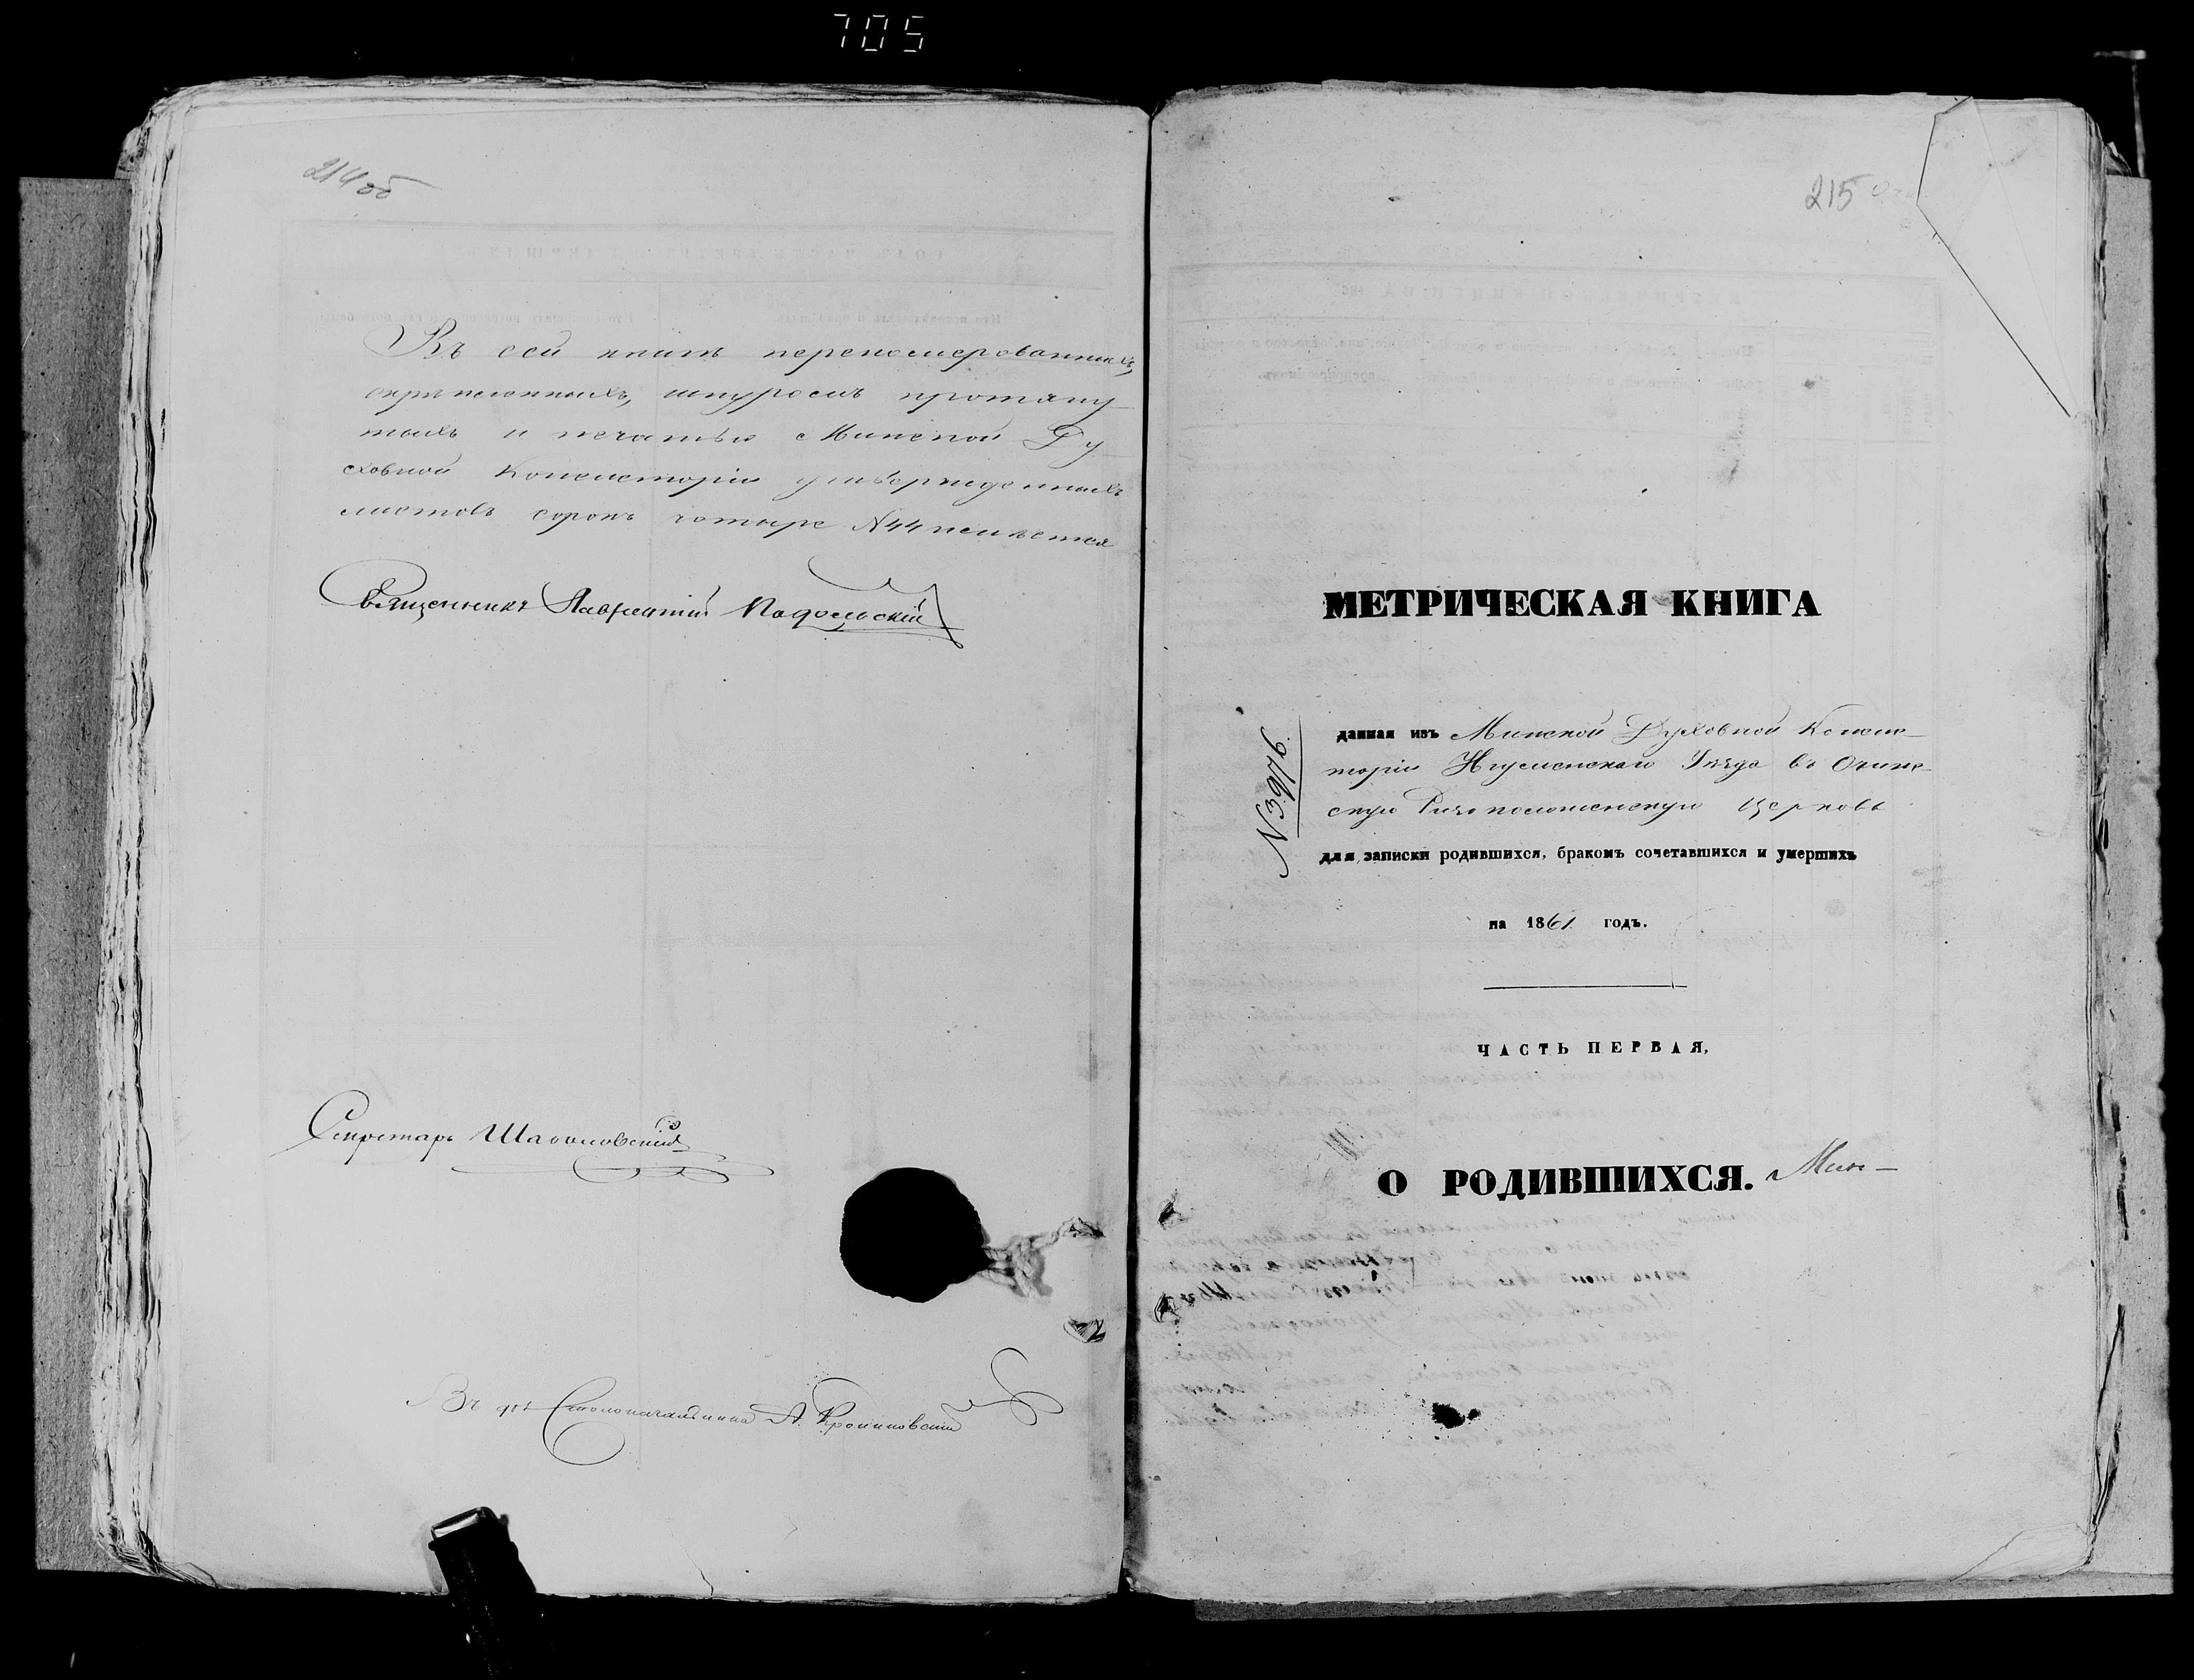 705
214об
Въ сей книгѣ перенумерованныхъ,
скрѣпленныхъ, шнуромъ протяну
тыхъ и печатью Минской Ду
ховной Консисторіи утвержденныхъ
листовъ сорокъ четыре N44 имѣется
Священникъ Лаврентій Подольскій
Секретарь
Въ д. Столоначальника А.
215
МЕТРИЧЕСКАЯ КНИГА
N 3976.
данная изъ Минской Духовной Консис-
торіи Игуменскаго Уѣзда въ
скую Ризоположенскую Церковь
для записки родившихся, бракомъ сочетавшихся и умершихъ
на 1861 годъ.
ЧАСТЬ ПЕРВАЯ,
О РОДИВШИХСЯ. Мин-